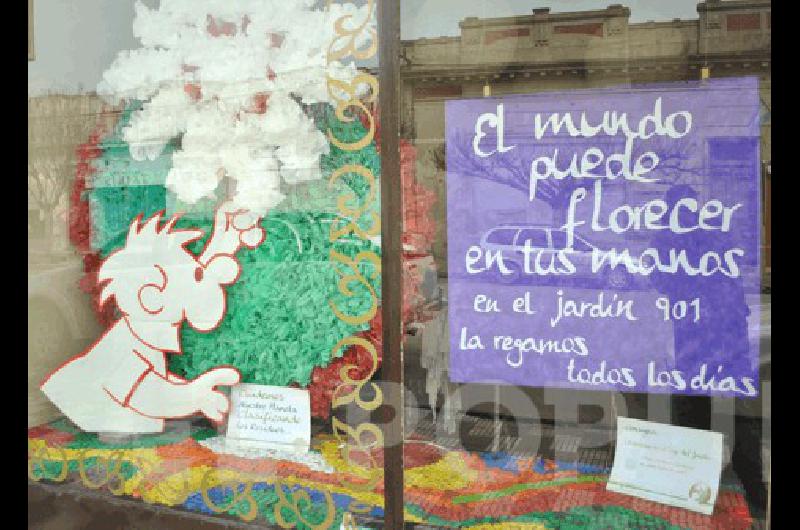 El mundo
puede
florecer
en tus manos
en el jardín 901
la regamos
todos los días
Cuidemos
Nuestro Mundo
Clasificando
los Residuos